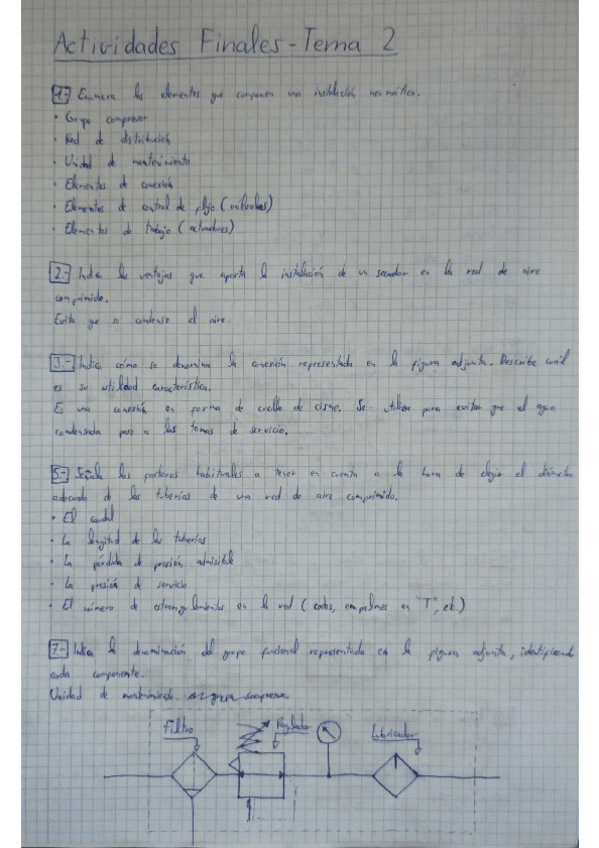 Actividades Finales - Tema 2
1.- Enumera los elementos que componen una instalación neumática.
· Grupo compresor
· Red de distribución
· Unidad de mantenimiento
· Elementos de conexión
· Elementos de control de flujo (válvulas)
· Elementos de trabajo (actuadores)
2.- Indica las ventajas que aporta la instalación de un secador en la red de aire
comprimido.
Evita que se condense el aire.
3.- Indica cómo se denomina la conexión representada en la figura adjunta. Describe cuál
es su utilidad característica.
Es una conexión en forma de cuello de cisne. Se utiliza para evitar que el agua
condensada pase a las tomas de servicio.
5.- Señala los factores habituales a tener en cuenta a la hora de elegir el diámetro
adecuado de las tuberías de una red de aire comprimido.
· El caudal
· La longitud de las tuberías
· La pérdida de presión admisible
· La presión de servicio
· El número de estrangulamientos en la red (codos, empalmes en "T", etc.)
7.- Indica la denominación del grupo funcional representado en la figura adjunta, identificando
cada componente.
Unidad de mantenimiento.
Filtro
Regulador
Lubricador